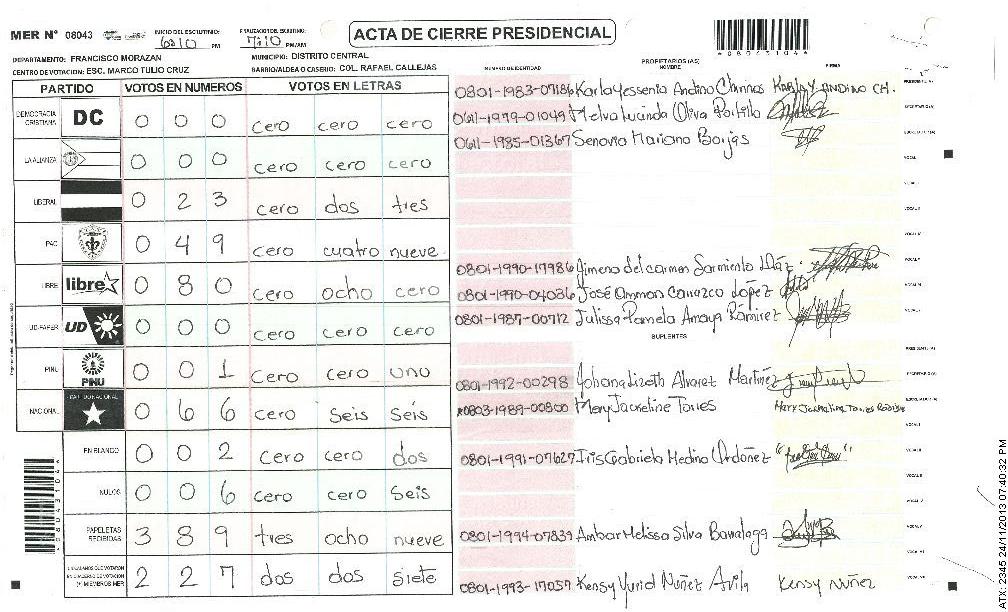 MER N° 08043
INICIO DEL ESCRUTINIO: 6:10 PM
FINALIZACION DEL ESCRUTINIO: 7:10 PM/AM
ACTA DE CIERRE PRESIDENCIAL
DEPARTAMENTO: FRANCISCO MORAZAN
MUNICIPIO: DISTRITO CENTRAL
CENTRO DE VOTACION: ESC. MARCO TULIO CRUZ
BARRIO/ALDEA O CASERIO: COL. RAFAEL CALLEJAS
NUMERO DE IDENTIDAD
PROPIETARIOS (AS)
NOMBRE
FIRMA
PARTIDO VOTOS EN NUMEROS VOTOS EN LETRAS
DEMOCRACIA CRISTIANA DC 0 0 0 cero cero cero
LA ALIANZA 0 0 0 cero cero cero
LIBERAL 0 2 3 cero dos tres
PAC 0 4 9 cero cuatro nueve
LIBRE libre 0 8 0 cero ocho cero
UD-FAPER UD 0 0 0 cero cero cero
PINU PINU 0 0 1 cero cero uno
NACIONAL PARTIDO NACIONAL 0 6 6 cero seis seis
EN BLANCO 0 0 2 cero cero dos
NULOS 0 0 6 cero cero seis
PAPELETAS RECIBIDAS 3 8 9 tres ocho nueve
2 2 7 dos dos siete
0801-1983-07186 Karla Yessenia Andino Chinnas KARLA Y ANDINO CH.
0611-1979-01049 Melva Lucinda Oliva Portillo
0611-1985-01367 Senovia Mariano Borjas
0801-1990-17986 Jimena del carmen Sarmiento Díaz.
0801-1990-04086 José Ammon Carrazco López
0801-1987-00712 Julissa Pamela Amaya Ramirez
SUPLENTES
0801-1992-00298 Johana Lizeth Alvarez Martinez
0803-1989-00800 Mery Jackeline Torres
0801-1991-07627 Iris Gabriela Medina Ordoñez
0801-1994-07839 Ambar Melissa Silva Barralaga
0801-1993-17057 Kensy Yuriel Nuñez Avila Kensy Nuñez
ATX-2345 24/11/2013 07:40:32 PM